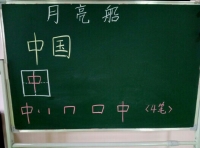 月亮船
中国
中
中 丨 冂 口 中 (4笔)